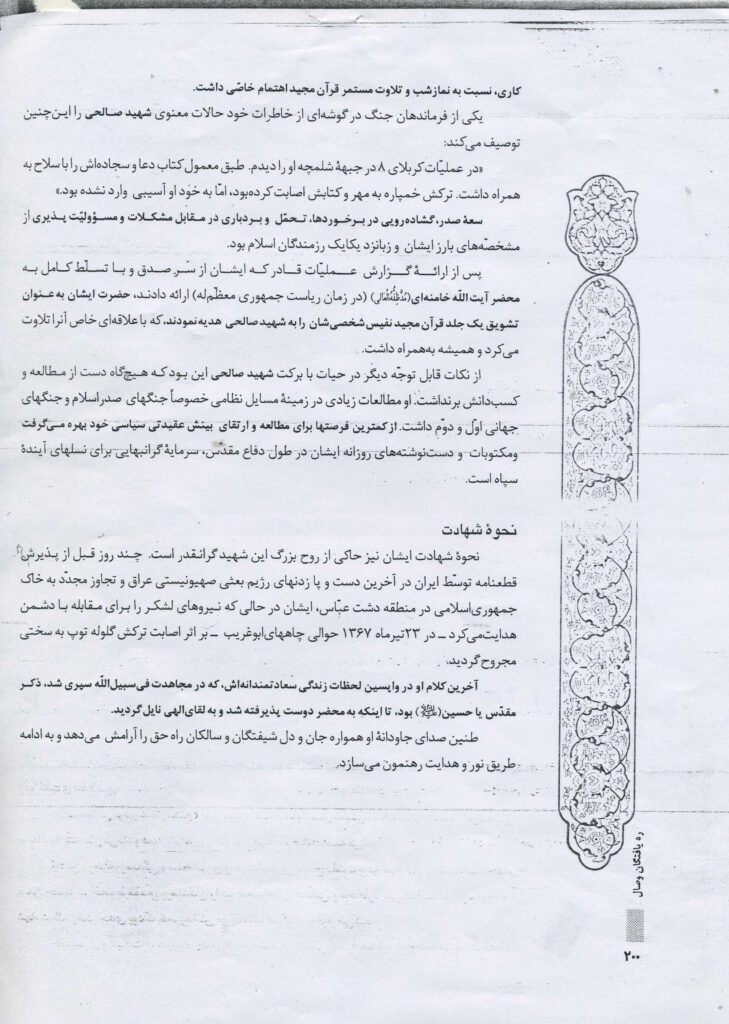 کاری، نسبت به نماز شب و تلاوت مستمر قرآن مجید اهتمام خاصّی داشت.
یکی از فرماندهان جنگ در گوشه‌ای از خاطرات خود حالات معنوی شهید صالحی را این‌چنین
توصیف می‌کند:
«در عملیّات کربلای ۸ در جبههٔ شلمچه او را دیدم. طبق معمول کتاب دعا و سجاده‌اش را با سلاح به
همراه داشت. ترکش خمپاره به مهر و کتابش اصابت کرده‌بود، امّا به خود او آسیبی وارد نشده بود.»
سعهٔ صدر، گشاده‌رویی در برخوردها، تحمّل و بردباری در مقابل مشکلات و مسؤولیّت پذیری از
مشخصّه‌های بارز ایشان و زبانزد یکایک رزمندگان اسلام بود.
پس از ارائهٔ گزارش عملیّات قادر که ایشان از سَرِ صدق و با تسلّط کامل به
محضر آیت‌اللّه خامنه‌ای(مدّظلّه‌العالی) (در زمان ریاست جمهوری معظّم‌له) ارائه دادند، حضرت ایشان به عنوان
تشویق یک جلد قرآن مجید نفیس شخصی‌شان را به شهید صالحی هدیه نمودند، که با علاقه‌ای خاص آنرا تلاوت
می‌کرد و همیشه به‌همراه داشت.
از نکات قابل توجّه دیگر در حیات با برکت شهید صالحی این بود که هیچ‌گاه دست از مطالعه و
کسب‌دانش برنداشت. او مطالعات زیادی در زمینهٔ مسایل نظامی خصوصاً جنگهای صدراسلام و جنگهای
جهانی اوّل و دوّم داشت. از کمترین فرصتها برای مطالعه و ارتقای بینش عقیدتی سیاسی خود بهره می‌گرفت
ومکتوبات و دست‌نوشته‌های روزانه ایشان در طول دفاع مقدّس، سرمایهٔ گرانبهایی برای نسلهای آیندهٔ
سپاه است.
نحوهٔ شهادت
نحوهٔ شهادت ایشان نیز حاکی از روح بزرگ این شهید گرانقدر است. چند روز قبل از پذیرش
قطعنامه توسّط ایران در آخرین دست و پا زدنهای رژیم بعثی صهیونیستی عراق و تجاوز مجدّد به خاک
جمهوری‌اسلامی در منطقه دشت عبّاس، ایشان در حالی که نیروهای لشکر را برای مقابله با دشمن
هدایت‌می‌کرد ـ در ۲۳تیرماه ۱۳۶۷ حوالی چاههای‌ابوغریب ـ بر اثر اصابت ترکش گلوله توپ به سختی
مجروح گردید.
آخرین کلام او در واپسین لحظات زندگی سعادتمندانه‌اش، که در مجاهدت فی‌سبیل‌اللّه سپری شد، ذکر
مقدّس یا حسین(علیه‌السلام) بود، تا اینکه به محضر دوست پذیرفته شد و به لقای‌الهی نایل گردید.
طنین صدای جاودانهٔ او همواره جان و دل شیفتگان و سالکان راه حق را آرامش می‌دهد و به ادامه
طریق نور و هدایت رهنمون می‌سازد.
ره یافتگان وصال
۲۰۰